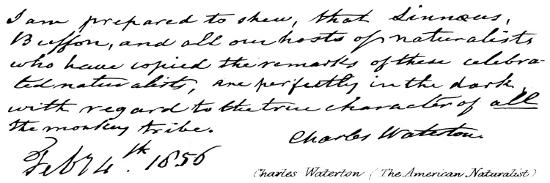 I am prepared to shew, that Linnæus,
Buffon, and all our hosts of naturalists
who have copied the remarks of these celebra-
ted naturalists, are perfectly in the dark
with regard to the true character of all
the monkey tribe.
Charles Waterton
Feby 4th. 1856
Charles Waterton (The American Naturalist)